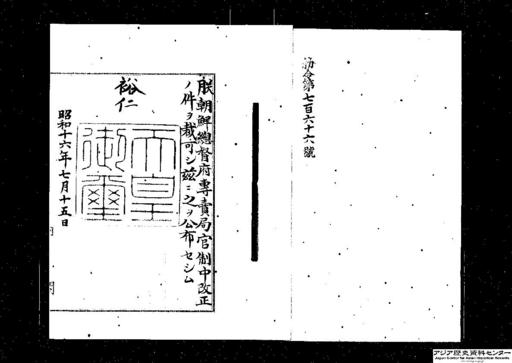 勅令第七百六十六號
朕朝鮮總督府專賣局官制中改正
ノ件ヲ裁可シ茲ニ之ヲ公布セシム
裕仁
天皇
御璽
昭和十六年七月十五日
アジア歴史資料センター
Japan Center for Asian Historical Records